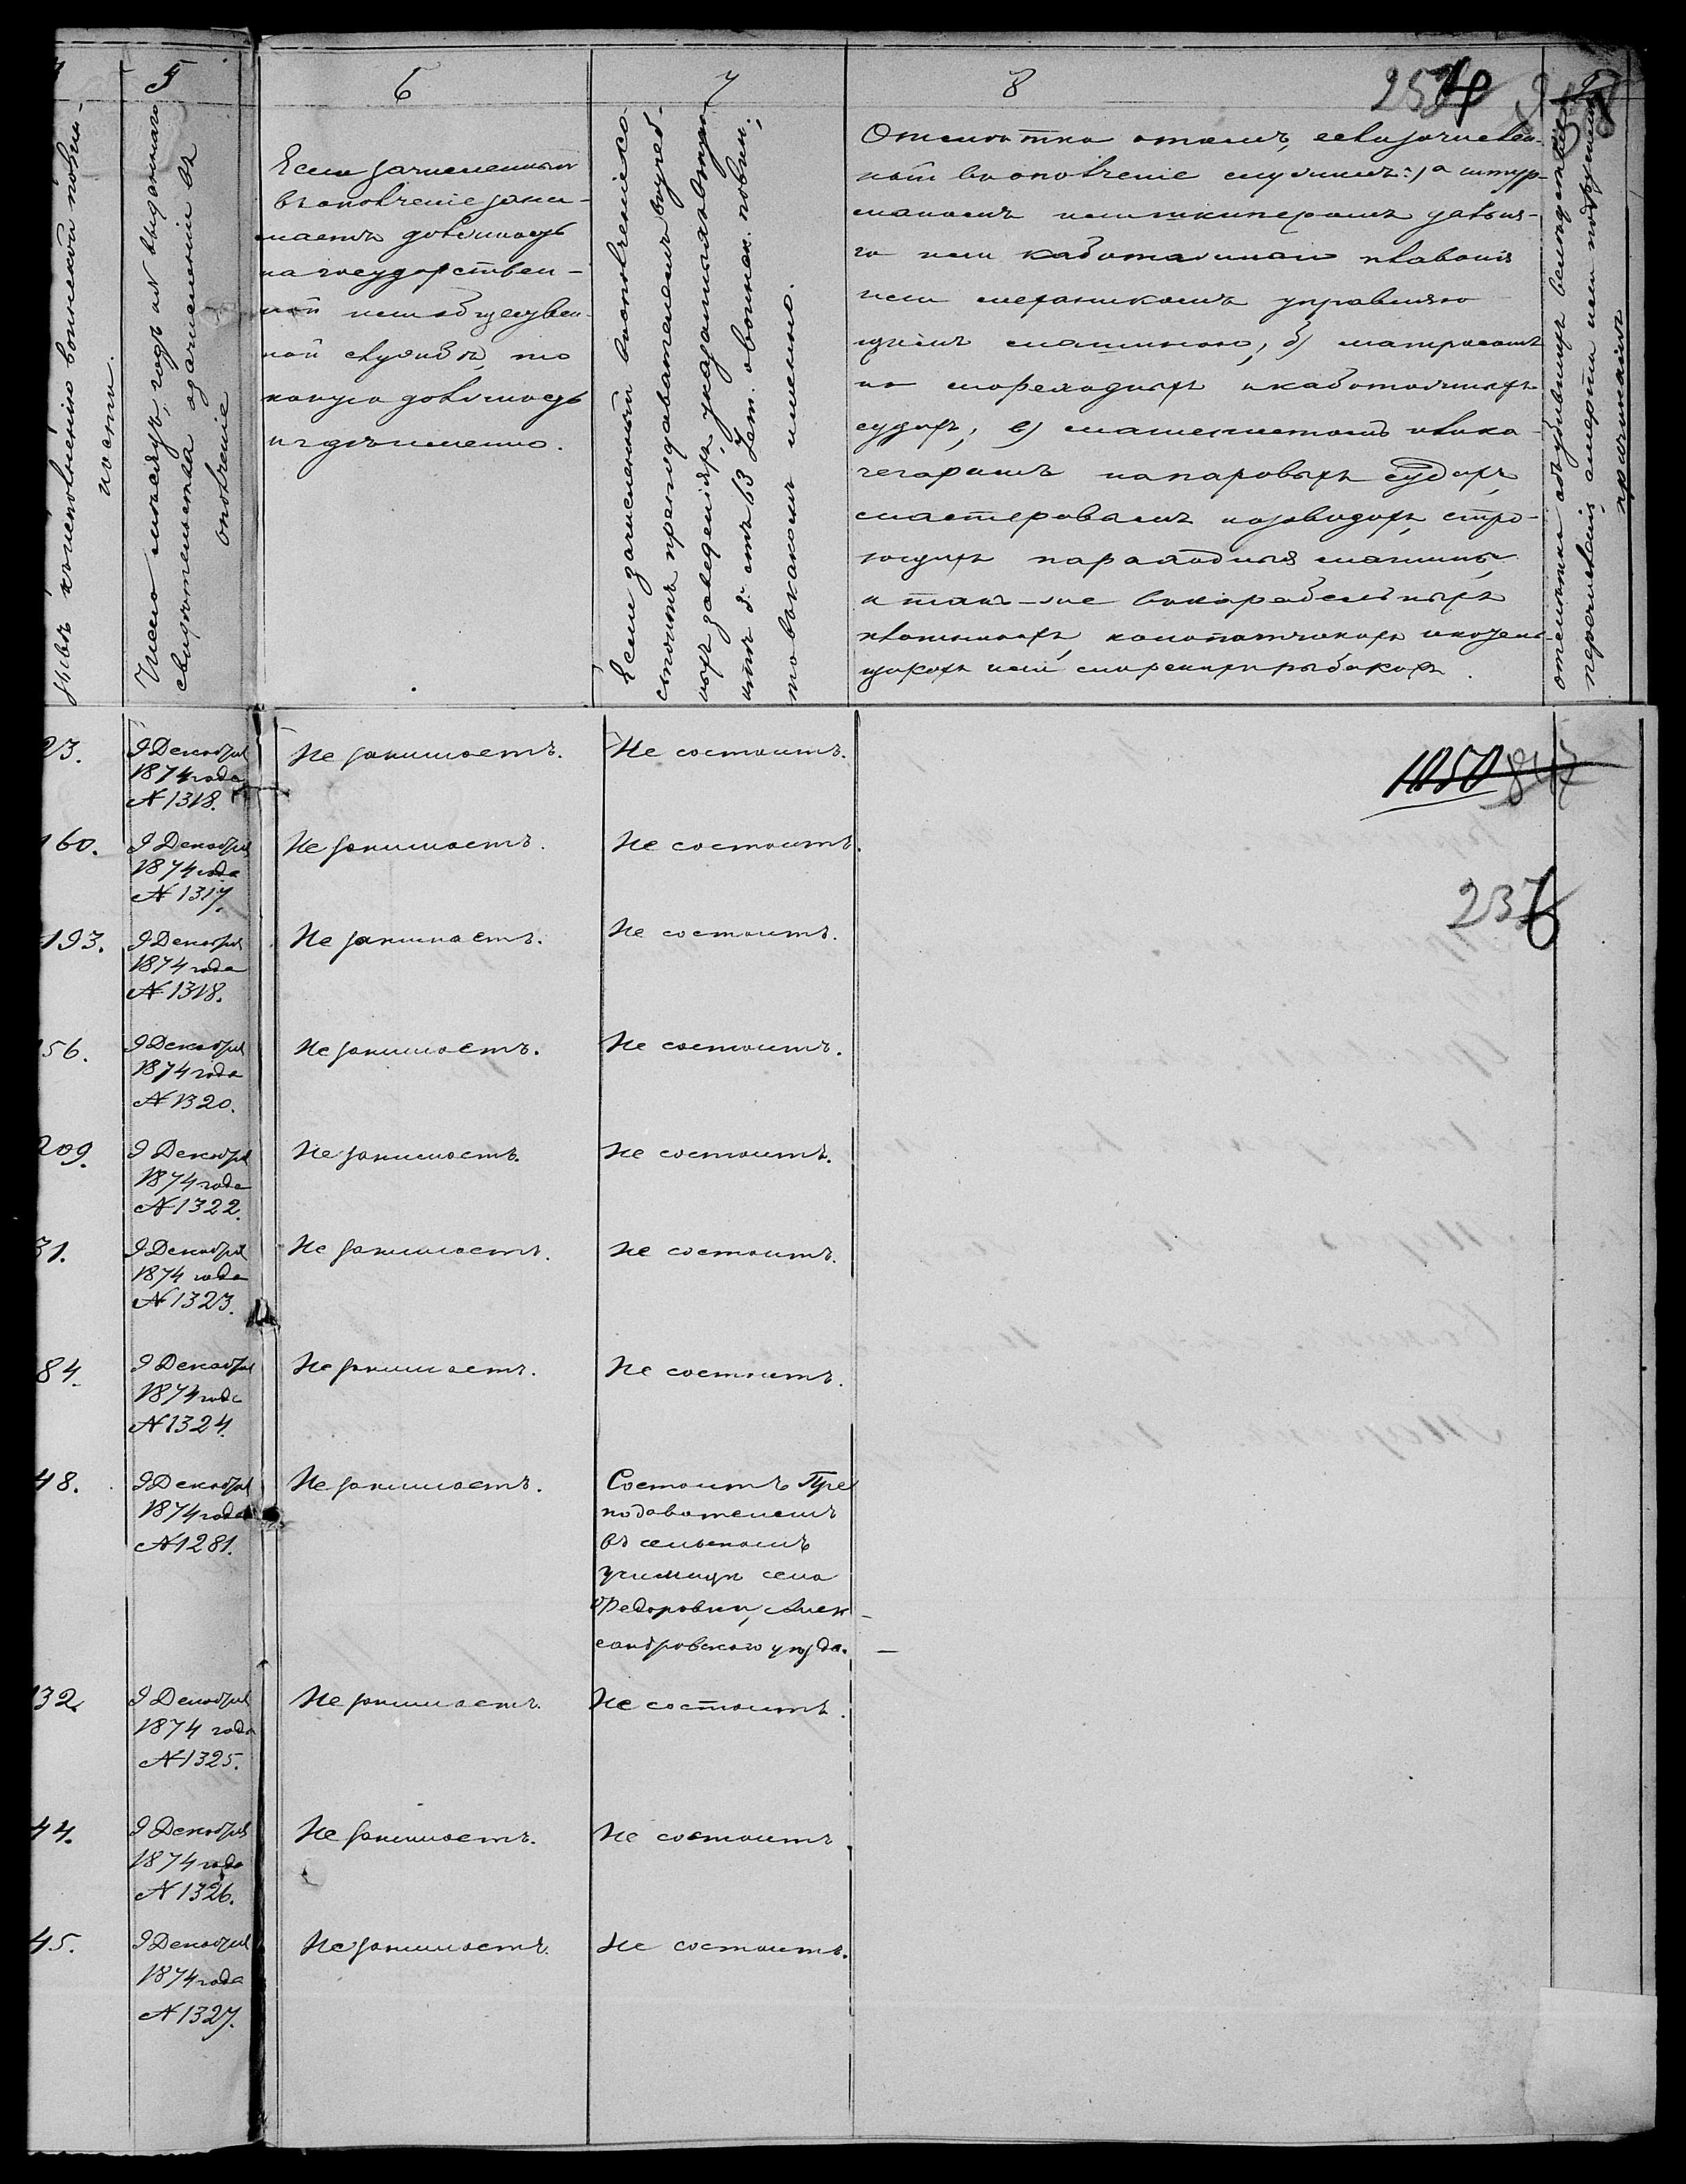 5
6
7
8
254
призыва къ исполненію воинской повин-
ности.
Число мѣсяцъ, годъ и № выданнаго
свидѣтельства о зачисленіи въ
ополченіе
Если зачисленный
въ ополченіе зани-
маетъ должность
на государствен-
ной или обществен-
ной службѣ, то
какую должность
и гдѣ именно.
Если зачисленный въ ополченіе со-
стоитъ преподавателемъ въ учеб-
ныхъ заведеніяхъ, указанныхъ въ
ст. 63 Уст. о воинск. повин.,
то въ какомъ именно.
Отмѣтка о томъ, если зачислен-
ный въ ополченіе служитъ: а) штур-
маномъ или шкиперомъ дальня-
го или каботажнаго плаванія
или механикомъ управляю-
щимъ машиною, б) матросомъ
на мореходныхъ и каботажныхъ
судахъ, в) машинистомъ или ко-
чегаромъ на паровыхъ судахъ,
мастеровымъ на заводахъ, стро-
ющихъ пароходныя машины,
а также въ корабельныхъ
плотникахъ, конопатчикахъ и котель-
щикахъ или морскихъ рыбакахъ.
отмѣтки объ убывшихъ вслѣдствіи
перечисленія, смерти или по другимъ
причинамъ
23.
9 Декабря
1874 года
№ 1318.
Не занимаетъ.
Не состоитъ.
1050 847
160.
9 Декабря
1874 года
№ 1317.
Не занимаетъ.
Не состоитъ.
237
193.
9 Декабря
1874 года
№ 1318.
Не занимаетъ.
Не состоитъ.
156.
9 Декабря
1874 года
№ 1320.
Не занимаетъ.
Не состоитъ.
209.
9 Декабря
1874 года
№ 1322.
Не занимаетъ.
Не состоитъ.
31.
9 Декабря
1874 года
№ 1323.
Не занимаетъ.
Не состоитъ.
84.
9 Декабря
1874 года
№ 1324.
Не занимаетъ.
Не состоитъ.
48.
9 Декабря
1874 года
№ 1281.
Не занимаетъ.
Состоитъ Пре
подавателемъ
въ сельскомъ
училищѣ села
Федоровки, Алек-
сандровскаго уѣзда.
132.
9 Декабря
1874 года
№ 1325.
Не занимаетъ.
Не состоитъ.
44.
9 Декабря
1874 года
№ 1326.
Не занимаетъ.
Не состоитъ.
45.
9 Декабря
1874 года
№ 1327.
Не занимаетъ.
Не состоитъ.